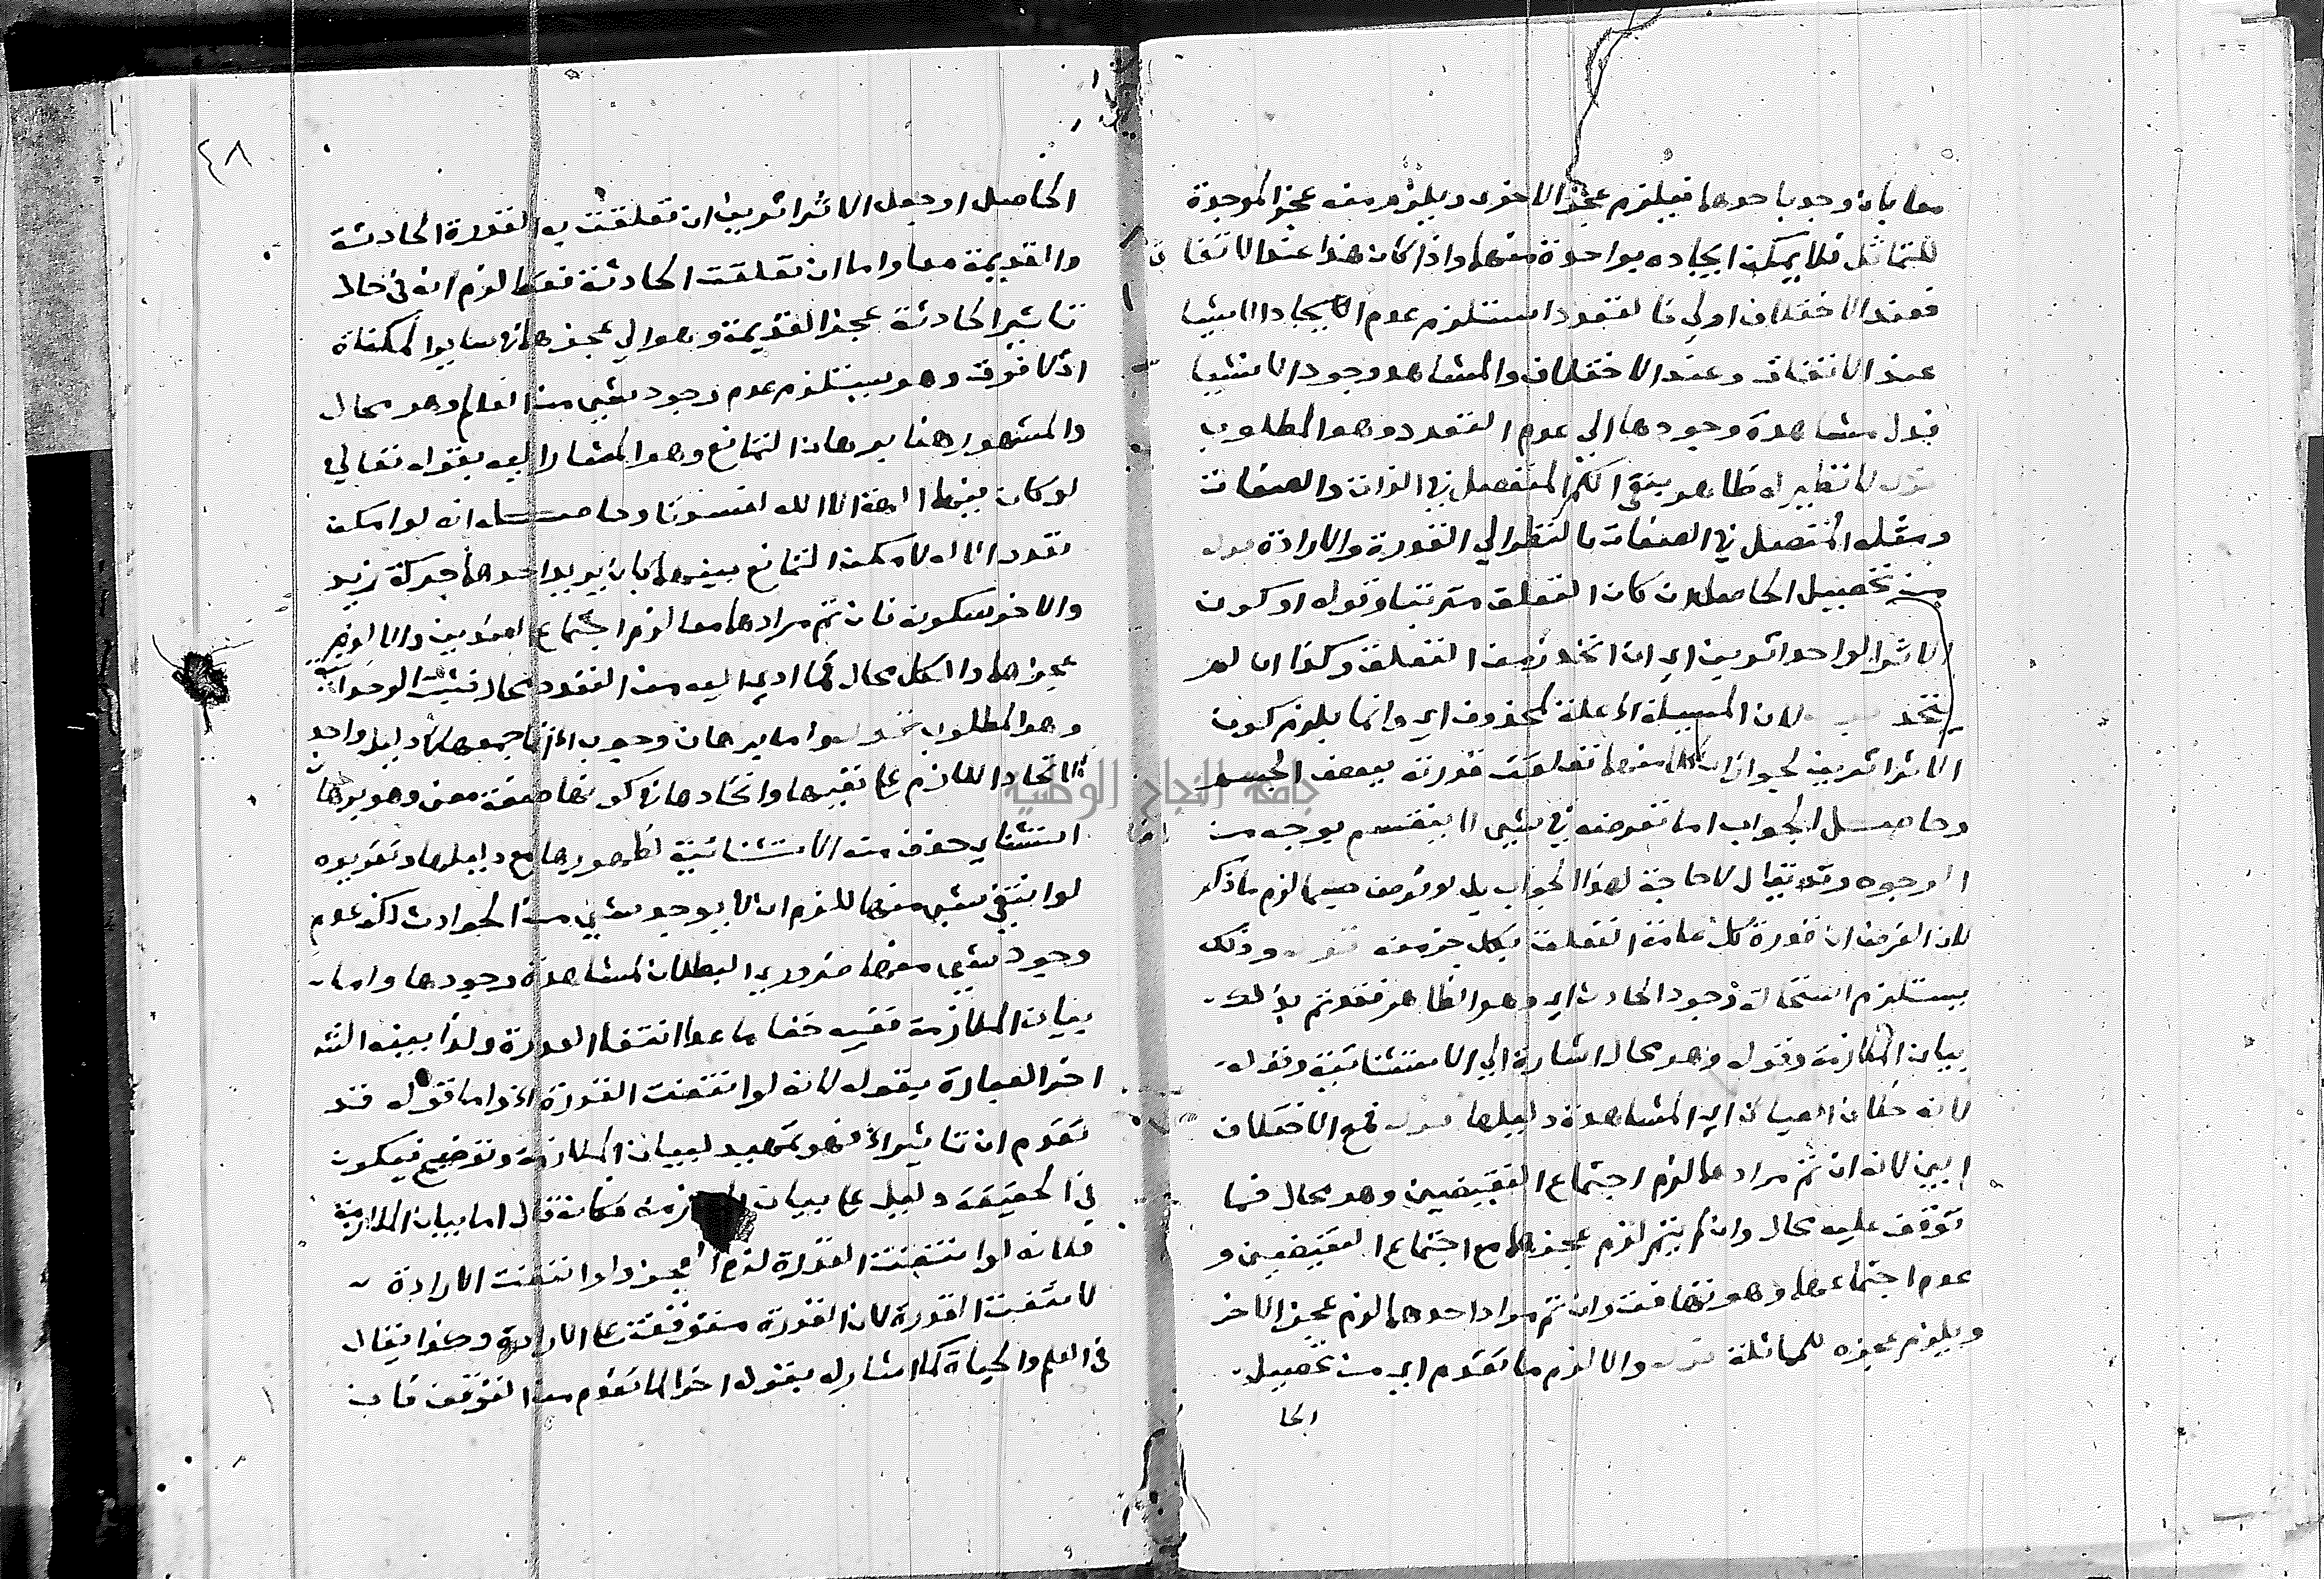 معا بان وجد باحدهما فيلزم عجز الاخرى ويلزم منه عجز الموجدة
للتماثل فلا يمكن ايجاده بواحدة منهما واذا كان هذا عند الاتفاق
فعند الاختلاف اولى فالتعدد استلزم عدم ايجاد الاشيا
عند الاتفاق وعند الاختلاف والمشاهد وجود الاشيا
فدل مشاهدة وجودها الي عدم التعدد وهو المطلوب
لا نظير له ظاهره ينفي الكم المنفصل في الذات والصفات
ومثله المتصل في الصفات بالنظر الي القدرة والارادة قوله
من تحصيل الحاصل ان كان التعلق مترتبا وقوله او كون
الاثر الواحد اثرين اي ان اتحد زمن التعلق وكذا ان لم
يتحد لان المسيلة الخ علة لمحذوف اي وانما يلزم كون
الاثر اثرين لجواز ان كلا منهما تعلقت قدرته ببعض الجسم
وحاصل الجواب اما نفرضه في شي لا ينقسم بوجه من
الوجوه وقد يقال لا حاجة لهذا الجواب بل لو فرض جسما لزم ما ذكر
لان الفرض ان قدرة كل عامة التعلق بكل جزء منه قوله وذلك
يستلزم استحالة وجود الحادث اي وهو الظاهر فقد تم بذلك
بيان الملازمة وقوله وهو محال اشارة الي الاستثنائية وقوله
لانه خلاف العيان اي المشاهدة دليلها قوله فمع الاختلاف
ابين لانه ان تم مرادهما لزم اجتماع النقيضين وهو محال فما
توقف عليه محال وان لم يتم لزم عجزهما مع اجتماع النقيضين و
عدم اجتماعهما وهو تهافت وان تم مراد احدهما لزم عجز الاخر
ويلزم عجزه للمماثلة قوله والا لزم ما تقدم اي من تحصيل
الحا
٤٨
الحاصل او جعل الاثر اثرين ان تعلقت به القدرة الحادثة
والقديمة معا واما ان تعلقت الحادثة فقط لزم انه في حال
تاثير الحادثة عجز القديمة وهو الي عجزها في ساير الممكنات
اذ لا فرق وهو يستلزم عدم وجود شي من العالم وهو محال
والمشهور هنا برهان التمانع وهو المشار اليه بقوله تعالي
لو كان فيهما الهة الا الله لفسدتا وحاصله انه لو امكن
تعدد الاله لامكن التمانع بينهما بان يريد احدهما حركة زيد
والاخر سكونه فان تم مرادهما معا لزم اجتماع الضدين والا لزم
عجزهما والكل محال فما ادي اليه من التعدد محال فثبت الوحدانية
وهو المطلوب قوله واما برهان وجوب الخ انما جمعها في دليل واحد
لاتحاد اللازم علي نفيها واتحادها في كونها صفة معنى وهو برهان
استثناي حذف منه الاستثنائية لظهورها مع دليلها وتقريره
لو انتفي شي منها للزم ان لا يوجد شي من الحوادث لكن عدم
وجود شي منها ضروري البطلان لمشاهدة وجودها واما
بيان الملازمة ففيه خفا ما عدا انتفا القدرة ولذا بينه الش
اخر العبارة بقوله لانه لو انتفت القدرة الخ واما قوله قد
تقدم ان تاثير الخ فهو تمهيد لبيان الملازمة وتوضيح فيكون
في الحقيقة دليل علي بيان الملازمة فكانه قال اما بيان الملازمة
فلانه لو انتفت القدرة لزم العجز ولو انتفت الارادة
لانتفت القدرة لان القدرة متوقفة علي الارادة وكذا يقال
في العلم والحياة كما اشار له بقوله اخرا لما تقدم من التوقف فان
جامعة النجاح الوطنية